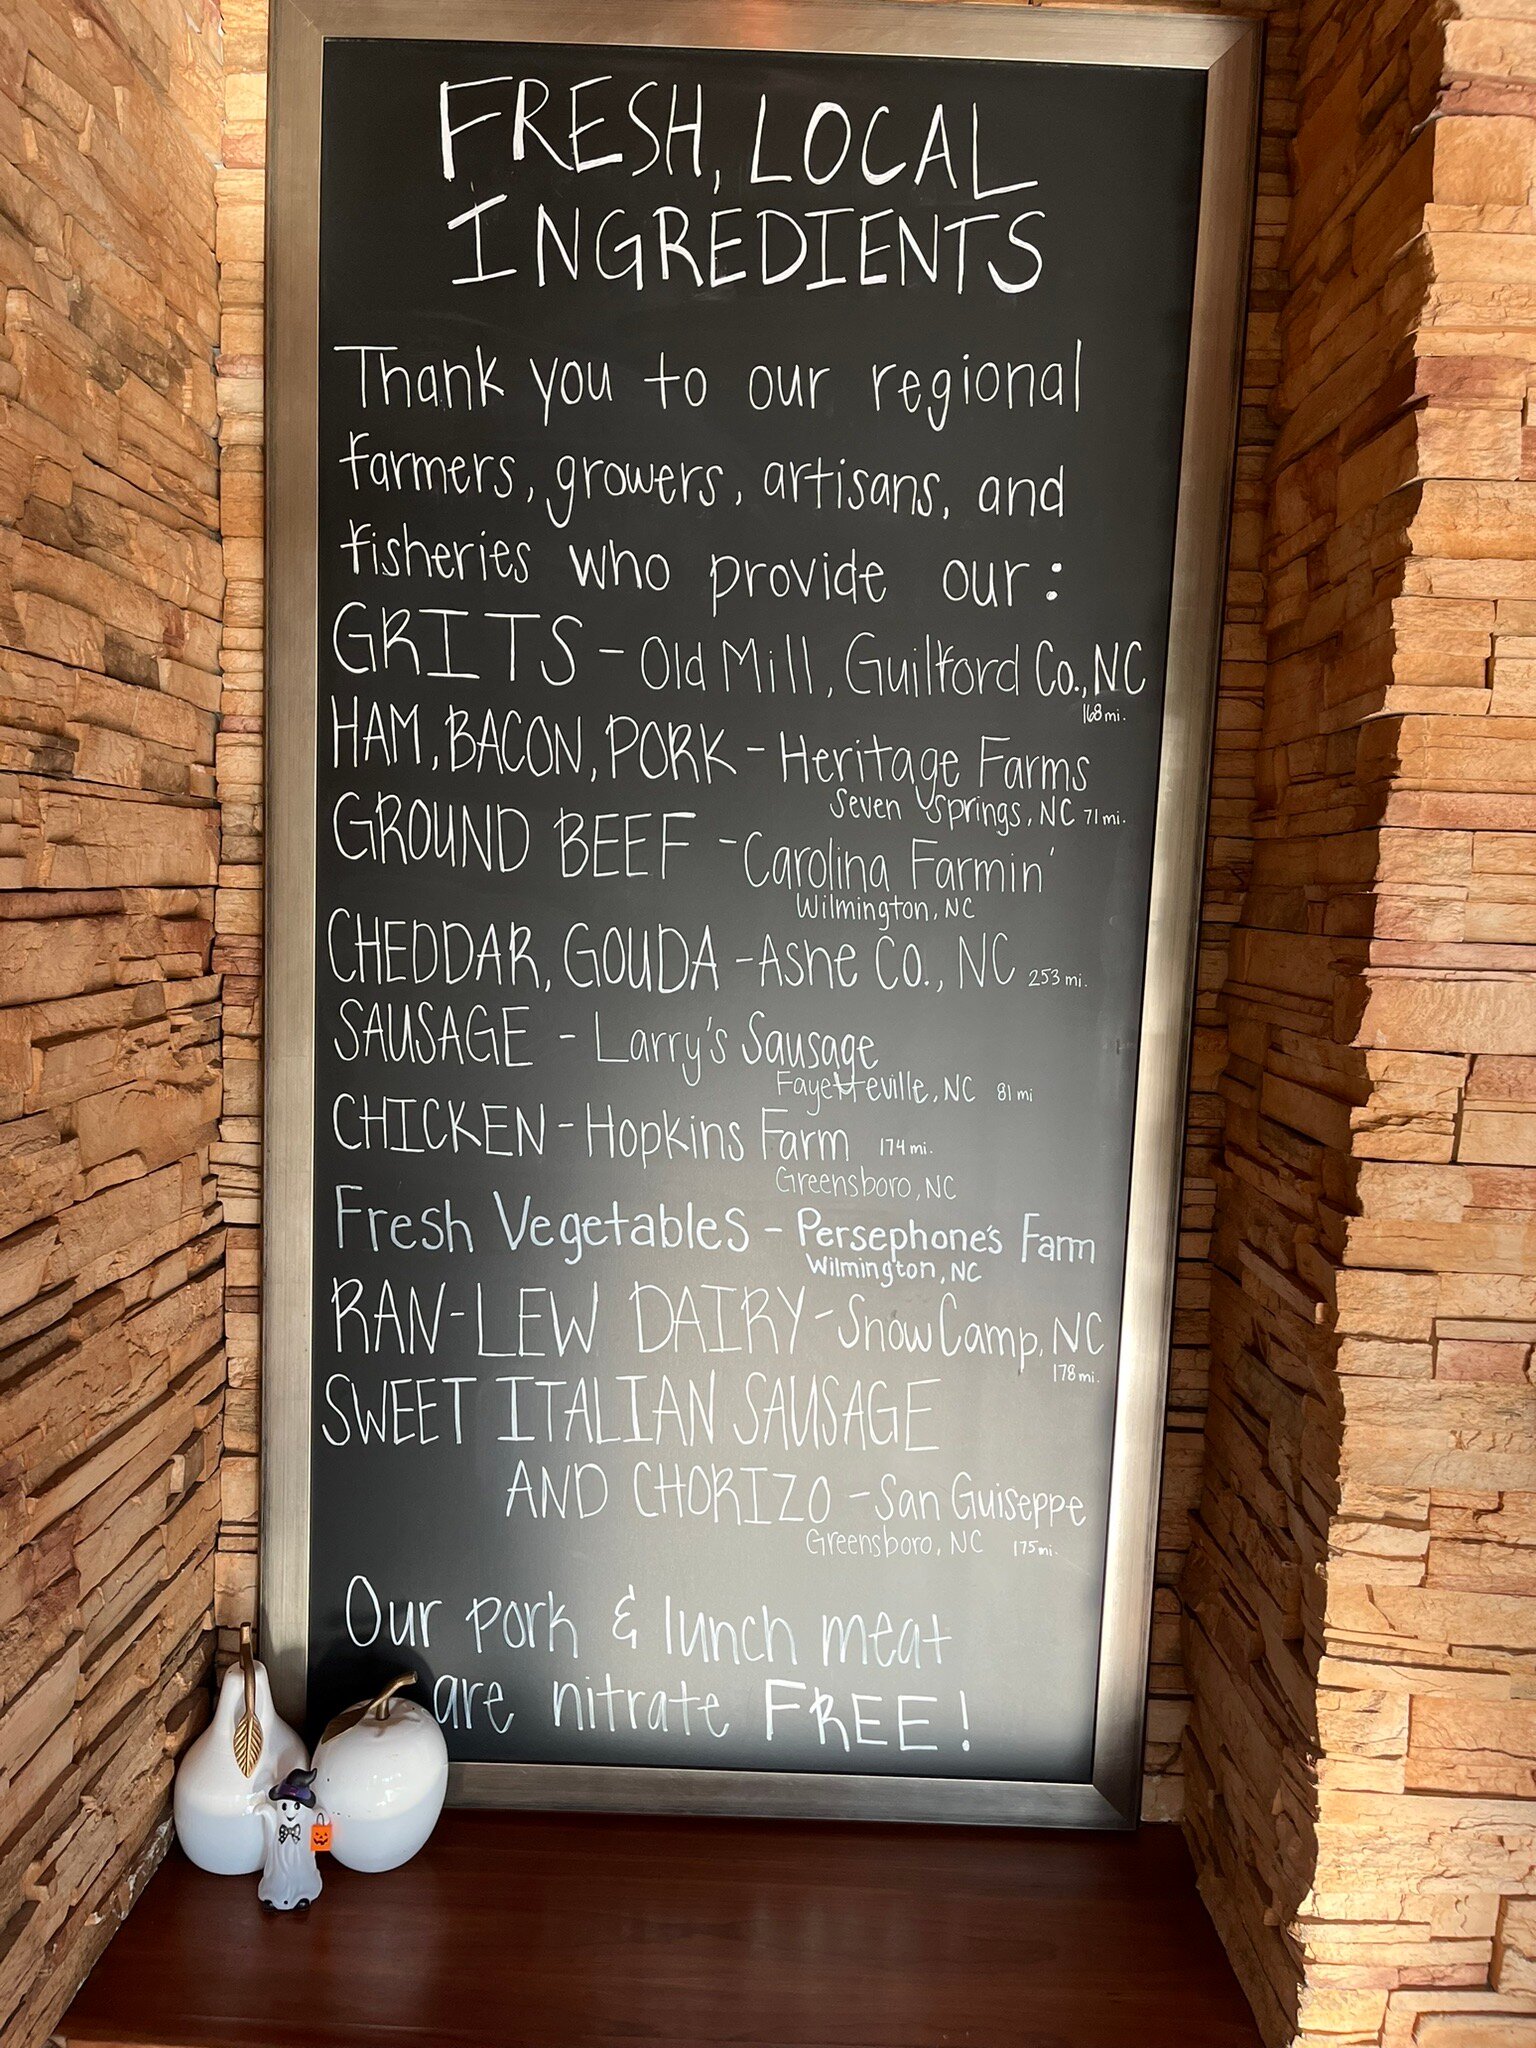 FRESH, LOCAL
INGREDIENTS
Thank you to our regional
farmers, growers, artisans, and
fisheries who provide our:
GRITS - Old Mill, Guilford Co., NC
168 mi.
HAM, BACON, PORK - Heritage Farms
Seven Springs, NC 71 mi.
GROUND BEEF - Carolina Farmin'
Wilmington, NC
CHEDDAR, GOUDA - Ashe Co., NC 253 mi.
SAUSAGE - Larry's Sausage
Fayetteville, NC 81 mi
CHICKEN - Hopkins Farm 174 mi.
Greensboro, NC
Fresh Vegetables - Persephone's Farm
Wilmington, NC
RAN-LEW DAIRY - Snow Camp, NC
178 mi.
SWEET ITALIAN SAUSAGE
AND CHORIZO - San Guiseppe
Greensboro, NC 175 mi.
Our pork & lunch meat
are nitrate FREE!